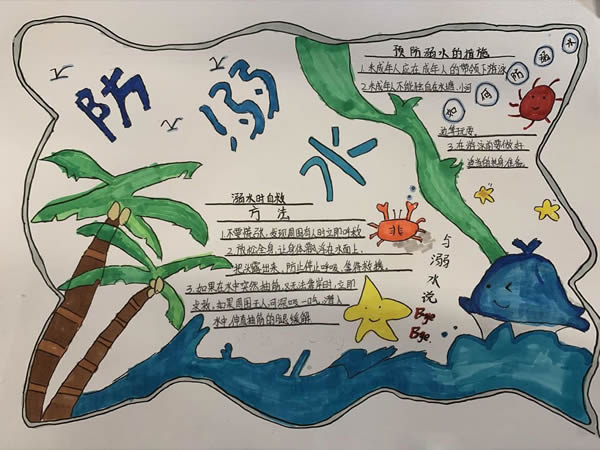 防溺水
预防溺水的措施
1.未成年人应在成年人的带领下游泳
2.未成年人不能独自在水塘、小河
边等玩耍。
3.在游泳前要做好
适当的热身准备。
如何防溺水
溺水时自救
方法
1.不要慌张,发现周围有人时立即呼救
2.放松全身,让身体飘浮在水面上,
把头露出来,防止停止呼吸,等待救援。
3.如果在水中突然抽筋,又无法靠岸时,立即
求救,如果周围无人,可深吸一口气,潜入
水中,伸直抽筋的腿缓解
与溺水说
Bye
Bye